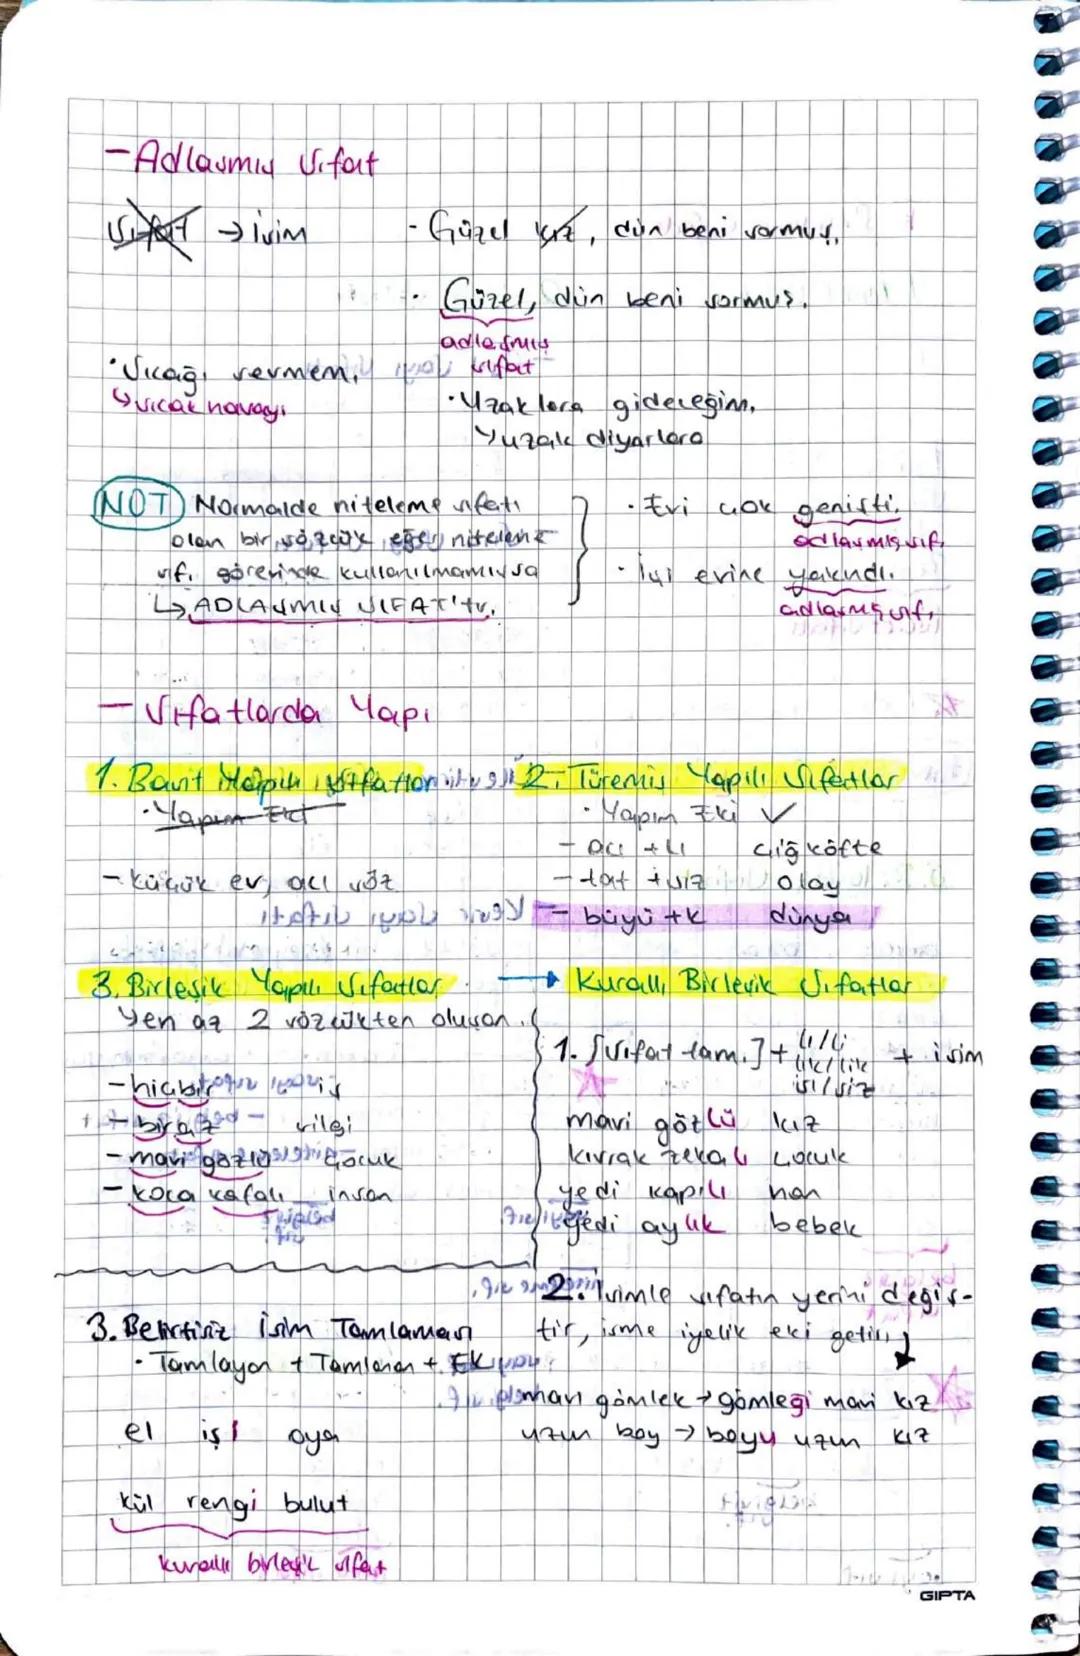 - Adlaşmış Sıfat
Sıfat → İsim
- Güzel kız, dün beni sormuş.
• Güzel, dün beni sormuş.
adlaşmış
sıfat
• Sıcağı sevmem.
↳ sıcak havayı
• Uzaklara gideceğim.
↳ uzak diyarlara
NOT Normalde niteleme sıfatı
olan bir sözcük eğer niteleme
sıf. görevinde kullanılmamışsa
↳ ADLAŞMIŞ SIFAT'tır.
• Evi çok genişti.
adlaşmış sıf.
• İşi evine yakındı.
adlaşmış sıf.
- Sıfatlarda Yapı
1. Basit Yapılı Sıfatlar
• Yapım Eki
- küçük ev, acı söz
2. Türemiş Yapılı Sıfatlar
• Yapım Eki ✓
- acı + lı çiğköfte
- tat + sız olay
- büyü + k dünya
3. Birleşik Yapılı Sıfatlar
↳ en az 2 sözcükten oluşan.
- hiçbir iş
- biraz silgi
- mavi gözlü çocuk
- koca kafalı insan
→ Kurallı Birleşik Sıfatlar
1. [Sıfat tam.] + lı/li lık/lik sız/siz + isim
mavi gözlü kız
kıvrak zekalı çocuk
yedi kapılı han
yedi aylık bebek
2. İsimle sıfatın yerini değiş-
tir, isme iyelik eki getir.
mavi gömlek → gömleği mavi kız
uzun boy → boyu uzun kız
3. Belirtisiz İsim Tamlaması
• Tamlayan + Tamlanan + Ek
el işi oya
kül rengi bulut
kurallı birleşik sıfat
GIPTA